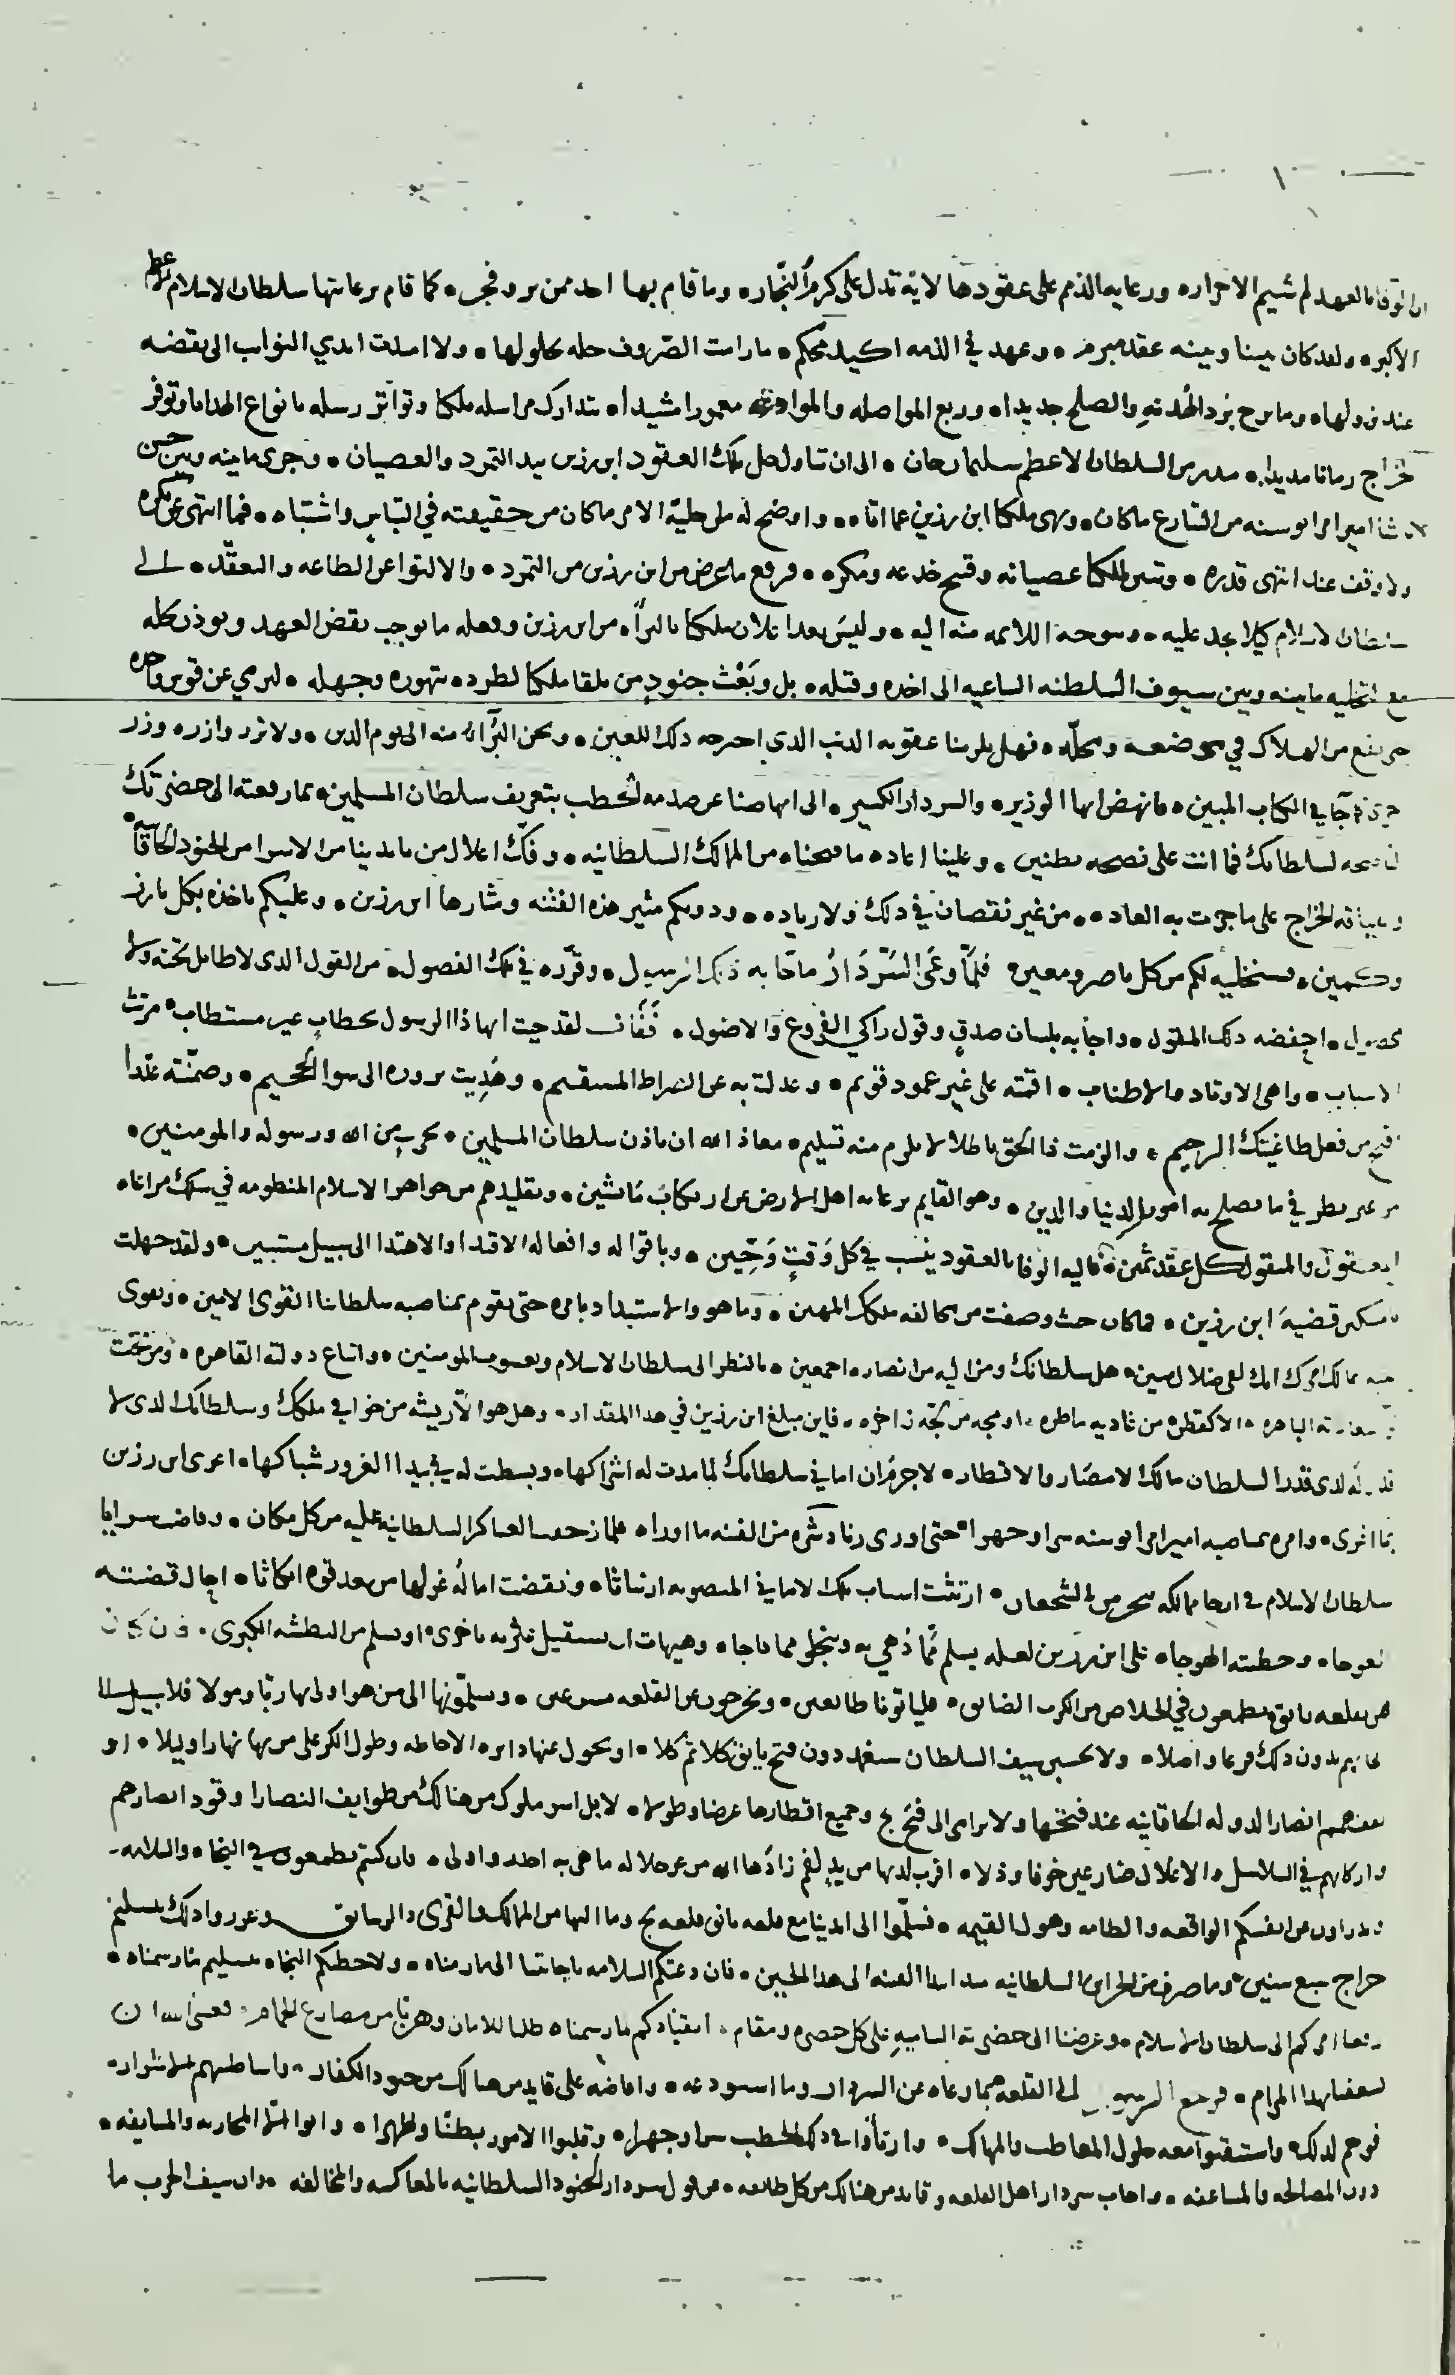 ان الوفا بالعهد لم شيم الاحرار ورعايه الذمم على عقودها لاية تدل على كرم النجار وما قام بها احد من بر وفجر كما قام برعايتها سلطان الاسلام
الاكبر ولقد كان بيننا وبينه عقد مبرم وعهد في الذمه اكيد محكم ما رامت الصروف حله بحلولها ولا امتدت ايدي النواب الى نقضه
عند نزولها وما برح برد الهدنه والصلح جديدا وربع المواصله والموادعه معمورا مشيدا بتدارك مراسله ملكنا وتواتر رسله بانواع الهدايا وتوفر
الخراج زمانا مديدا السلطان الاعظم سليمان خان الى ان تناول حل تلك العقود ابن رزين بيد التمرد والعصيان وجرى ما بينه وبين حسن
باشا امير امرا بوسنه من التنازع ما كان ونهى ملكنا ابن رزين عما اتاه واوضح له من جلية الامر ما كان من حقيقته في التباس واشتباه فما انتهى عن مكره
ولا وقف عند انتهى قدره وتبين لملكنا عصيانه وقبح خدعه ومكره فرفع ما عرض من ابن رزين من التمرد والالتوا عن الطاعه والتعقد الى
سلطان الاسلام كيلا يجد عليه وتتوجه اللائمه منه اليه وليس بعد اعلان ملكنا بالبراه من ابن رزين وفعله ما يوجب نقض العهد ويوذن بحله
مع التخليه ما بينه وبين سيوف السلطنه الساعيه الى اخذه وقتله بل وبعث جنود من تلقا ملكنا لطرده بتهوره وجهله لنرمي عن قوس واحده
حتى يقع من الهلاك في موضعه ومحله فهل يلزمنا عقوبه الذنب الذي اجترحه ذلك اللعين ونحن البرآء منه الى يوم الدين ولا تزر وازره وزر
اخرى جآ في الكتاب المبين فانهض ايها الوزير والسردار الكبير الى انهاضنا عن صدمه الخطب بتعريف سلطان المسلمين بما رفعته الى حضرتك
نصحه لسلطانك فما انت على نصحه بظنين وعلينا اعاده ما فتحناه من الممالك السلطانيه وفك اغلال من بايدينا من الاسرا من الجنود الخاقانيه
وسياقه الخراج على ما جرت به العاده من غير نقصان في ذلك ولا زياده ودونكم مثير هذه الفتنه ومثارها ابن رزين وعليكم باخذه بكل بارز
وكمين فسنخليه لكم من كل ناصر ومعين فلما وعى السردار ما جآ به ذلك الرسول وقرره في تلك الفصول من القول الذي لا طائل تحته ولا
محصول اجفضه ذلك المقول واجابه بلسان صدق وقول زاكي الفروع والاصول فقال لقد جيت ايها ذا الرسول بخطاب غير مستطاب مرتث
الاسباب واهي الاوتاد والاطناب اقمته على غير عمود قويم وعدلت به عن الصراط المستقيم وهديت بزوره الى سوا الجحيم وضمنته عذرا
اقبح من فعل طاغيتك الرجيم والزمت ذا الحق باطلا لا يلزم منه تسليم معاذ الله ان ياذن سلطان المسلمين بحرب من الله ورسوله والمومنين
من غير نظر في ما يصلح به امور الدنيا والدين وهو القايم برعايه اهل الارض عن ارتكاب ما يشين وتقليدهم من جواهر الاسلام المنظومه في سلك مراعاه
المعقول والمنقول كل عقد ثمين فاليه الوفا بالعقود ينسب في كل وقت وحين وباقواله وافعاله الاقتدا والاهتدا الى سبيل مستبين ولقد جهلت
قضية ابن رزين فما كان حيث وصفت من مخالفه ملكك المهين وما هو والاستبداد بامره حتى يقوم بمناصبه سلطاننا القوي الامين ودعوى
انك لفي ضلال مبين هل سلطانك ومن اليه من انصاره اجمعين بالنظر الى سلطان الاسلام ويعسوب المومنين واتباع دولته القاهره ومن تحت
الباهره الا كقطره من غاديه ماطره او مجه من لجة زاخره فاين مبلغ ابن رزين في هذا المقدار وهل هو الا ريشه من خوافي ملكك وسلطانك الذي لا
قدر له لدى قدر السلطان مالك الامصار والاقطار لا جرم ان اماني سلطانك لما مدت له اشراكها وبسطت له في بيدا الغرور شباكها اغرى ابن رزين
بما اغرى وامره بمناصبه امير امرا بوسنه سرا وجهرا حتى اورى زناد شره من الفتنه ما اورا فلما زحفت العساكر السلطانيه عليه من كل مكان وفاضت سرايا
سلطان الاسلام في ارجا ممالكه ارتثت اسباب تلك الاماني المنصوبه ارتثاثا ونقضت اماله غزلها من بعد قوه انكاثا احال قضيته
العوجا وخطيته الهوجا على ابن رزين لعله يسلم مما دهي به وينجو مما فاجا وهيهات ان يستقيل عثره باخرى او يسلم من البطشه الكبرى فان كان
من بقلعه يانق يطمعون في الخلاص من الكرب الضايق فلياتونا طائعين ويخرجون عن القلعه مسرعين ويسلمونها الى من هو اولى بها ربا ومولا فلا سبيل الى
نجاتهم بدون ذلك فرعا واصلا ولا تحسبن سيف السلطان سيغمد دون فتح يانق كلا ثم كلا او يحول عنها دايره الاحاطه وطول الكر على من بها نهارا وليلا او
انصار الدوله الخاقانيه عند فتحها ولا ترامى الى فتح بج وجميع اقطارها عرضا وطولا لا بل اسر ملوك من هنالك من طوايف النصارا وقود انصارهم
واركانهم في السلاسل والاغلال ضارعين خوفا وذلا اقرب لديها من يد لفم زادها الله من عز حلاله ما هي به احق واولى فان كنتم تطمعون في النجاه والسلامه
وتدراون عن انفسكم الواقعه والطامه وهول القيمه فسلموا الى ايدينا مع قلعه يانق قلعه بج وما اليها من الممالك والقرى والرساتق وعززوا ذلك بتسليم
خراج سبع سنين وما صرف من الخزاين السلطانيه منذ ابتدا الفتنه الى هذا الحين فان دعتكم السلامه باجابتنا الى ما رمناه ولاحظكم النجاه بتسليم ما رسمناه
رفعنا امركم الى سلطان الاسلام وعرضنا الى حضرته الساميه على كل حصر ومقام انقيادكم لما رسمناه طلبا للامان وهربا من مصارع الحمام فعسى الله ان
يسعفنا بهذا المرام فرجع الرسول الى القلعه بما وعاه عن السردار وما استودعه وافاضه على قايد من هنالك من جنود الكفار واساطينهم الاشرار
فوجم لذلك واستيقنوا معه حلول المعاطب والمهالك وارتأوا في ذلك الخطب سرا وجهرا وقلبوا الامور بطنا وظهرا وابوا الا المحاربه والمسايفه
دون المصالحه والمساعفه واجاب سردار اهل القلعه وقايد من هنالك من كل طائفه من قول سردار الجنود السلطانيه بالمعاكسه والمخالفه وان سيف الحرب ما